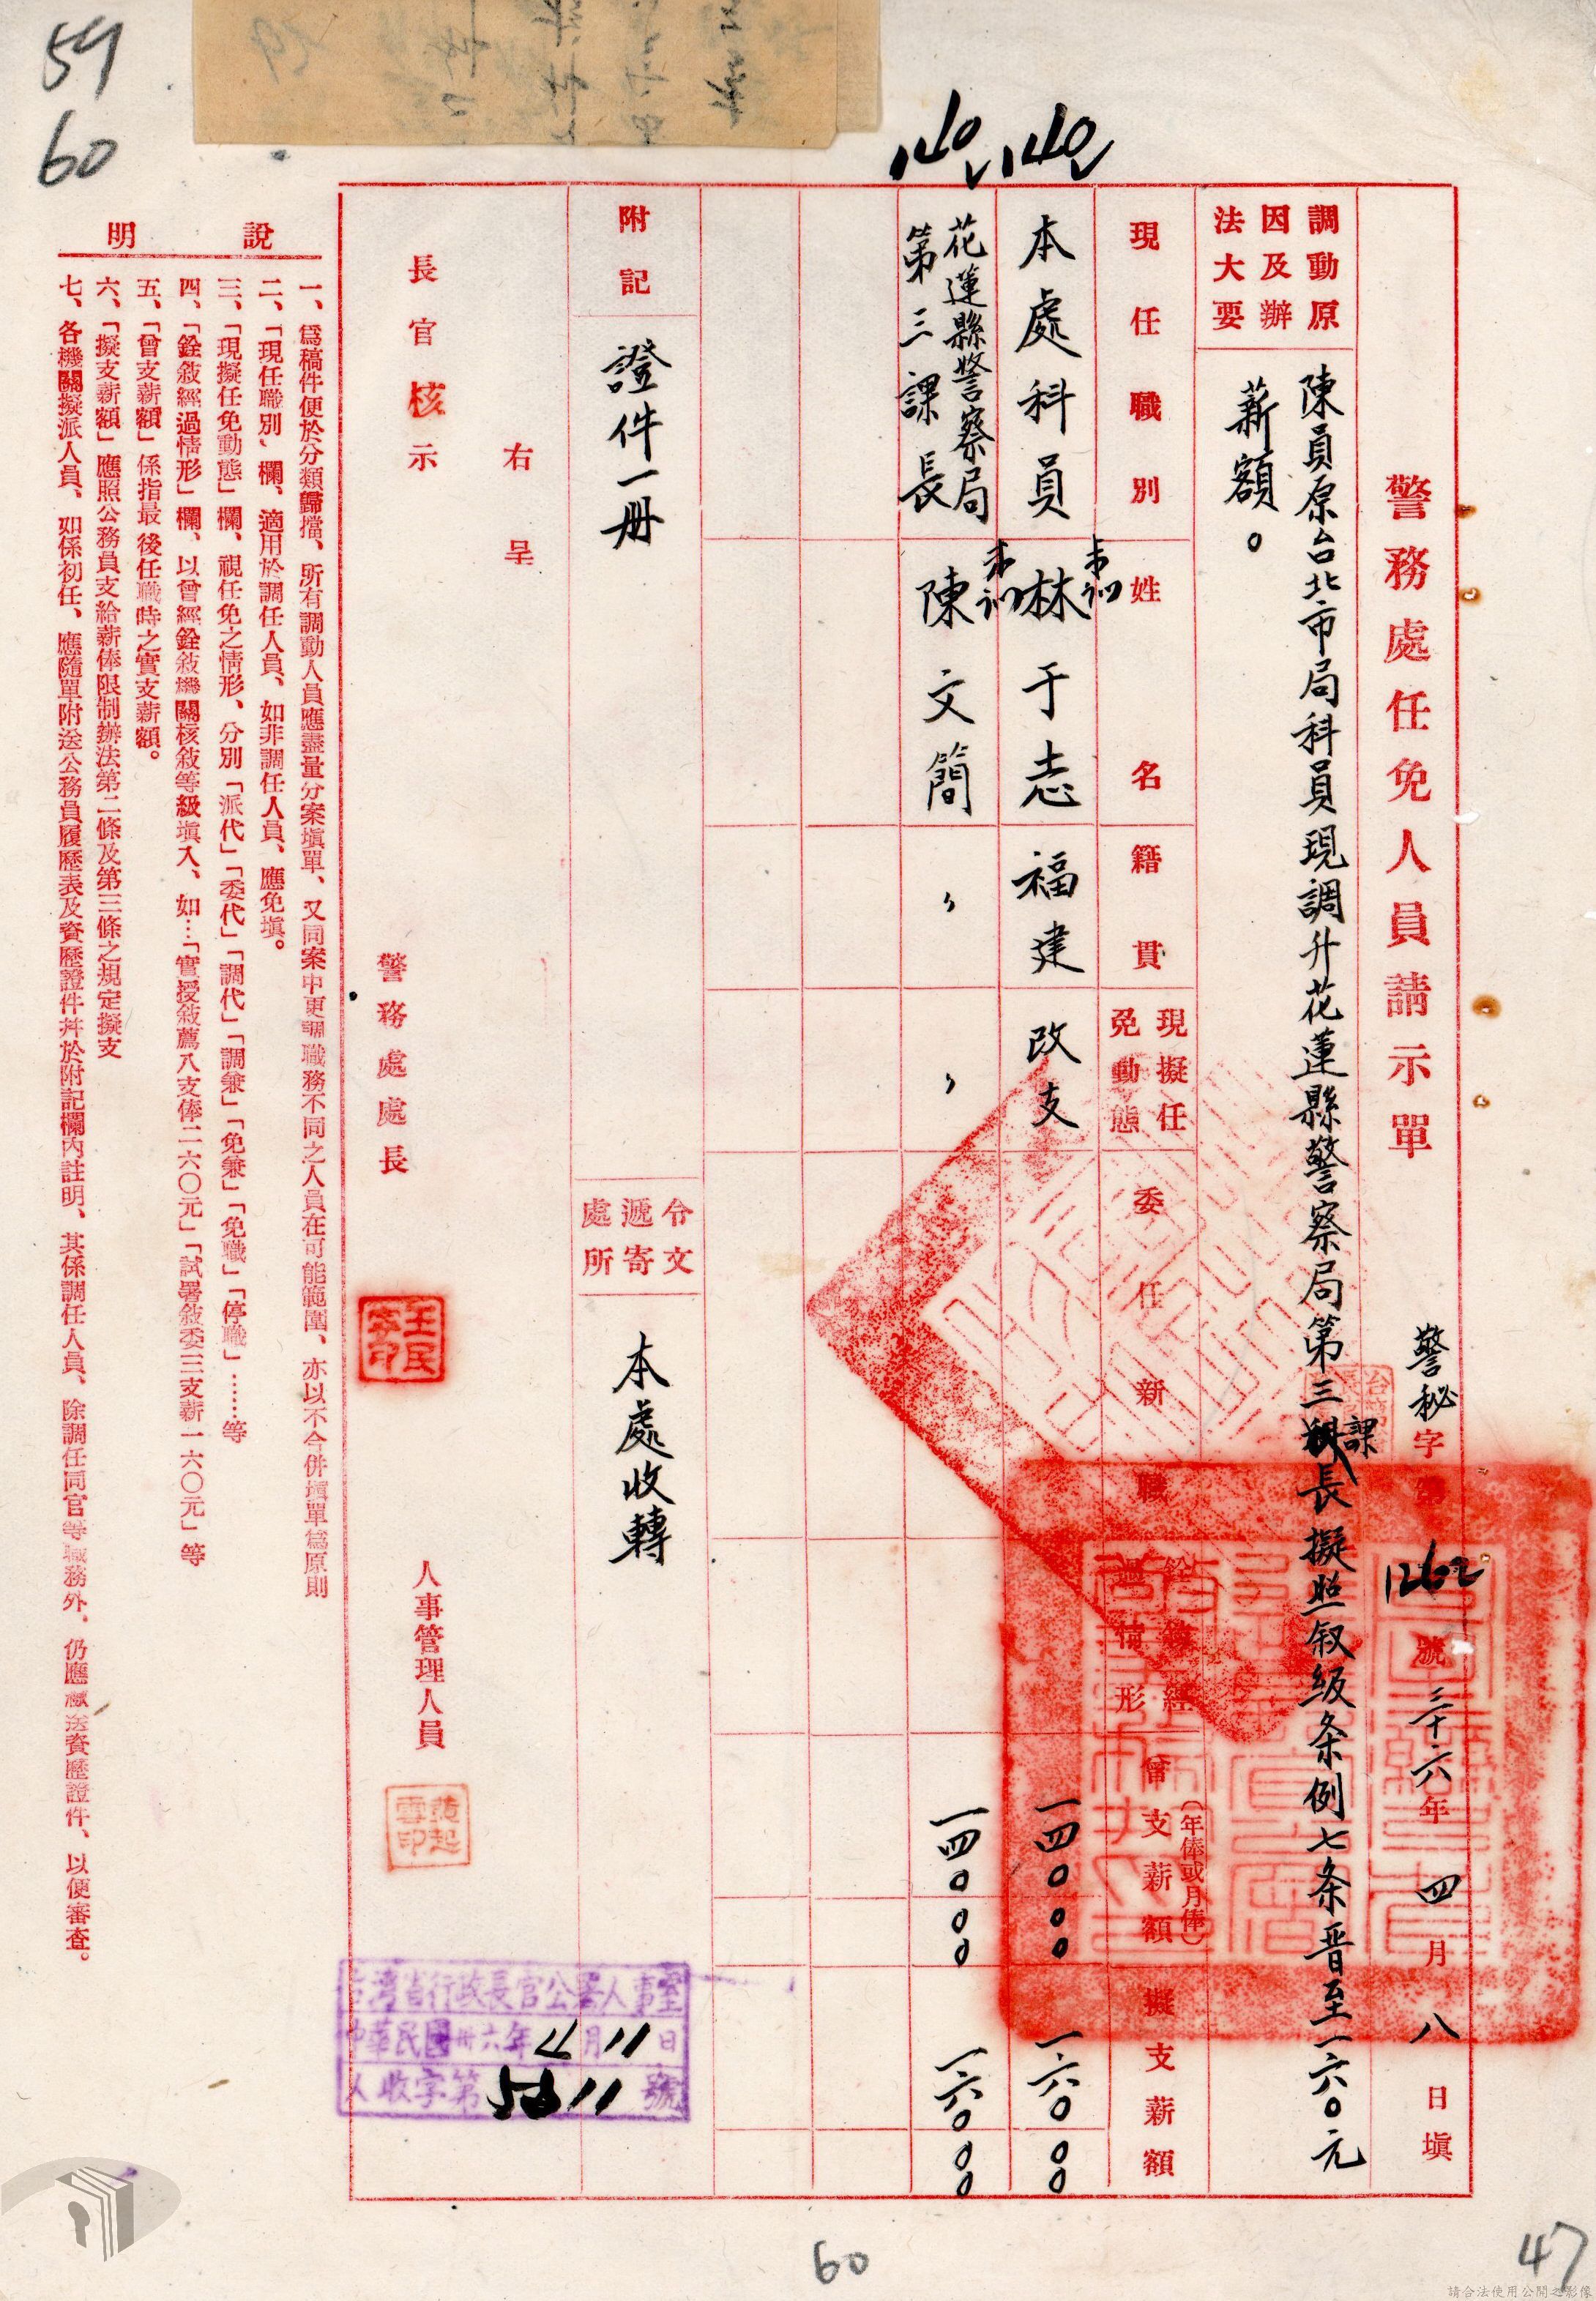 59
60
140
140
警務處任免人員請示單
警秘字第1262號 三十六年四月八日填
調動原因及辦法大要
陳員原台北市局科員現調升花蓮縣警察局第三課長擬照叙級条例七条晋至一六〇元
薪額。
現任職別
姓名
籍貫
現擬任免動態
委任新職
銓敍經過情形
曾支薪額
(年俸或月俸)
擬支薪額
本處科員
未訓
林于志
福建
改支
一四〇〇〇
一六〇〇〇
花蓮縣警察局
第三課長
未訓
陳文簡
〃
〃
一四〇〇〇
一六〇〇〇
附記
證件一册
令文遞寄處所
本處收轉
右呈
長官核示
警務處處長
王民寧印
人事管理人員
台灣省行政長官公署人事室
中華民國卅六年4月11日
人收字第5211號
說明
一、爲稿件便於分類歸擋、所有調動人員應盡量分案塡單、又同案中更調職務不同之人員在可能範圍、亦以不合併塡單爲原則
二、「現任職別、欄、適用於調任人員、如非調任人員、應免塡。
三、「現擬任免動態」欄、視任免之情形、分別「派代」「委代」「調代」「調兼」「免兼」「免職」「停職」……等
四、「銓敍經過情形」欄、以曾經銓敍機關核敍等級塡入、如…「實授敍薦八支俸二六〇元」「試署敍委三支薪一六〇元」等
五、「曾支薪額」係指最後任職時之實支薪額。
六、「擬支薪額」應照公務員支給薪俸限制辦法第二條及第三條之規定擬支
七、各機關擬派人員、如係初任、應隨單附送公務員履歷表及資歷證件幷於附記欄內註明、其係調任人員、除調任同官等職務外、仍應檢送資歷證件、以便審查。
60
47
請合法使用公開之影像